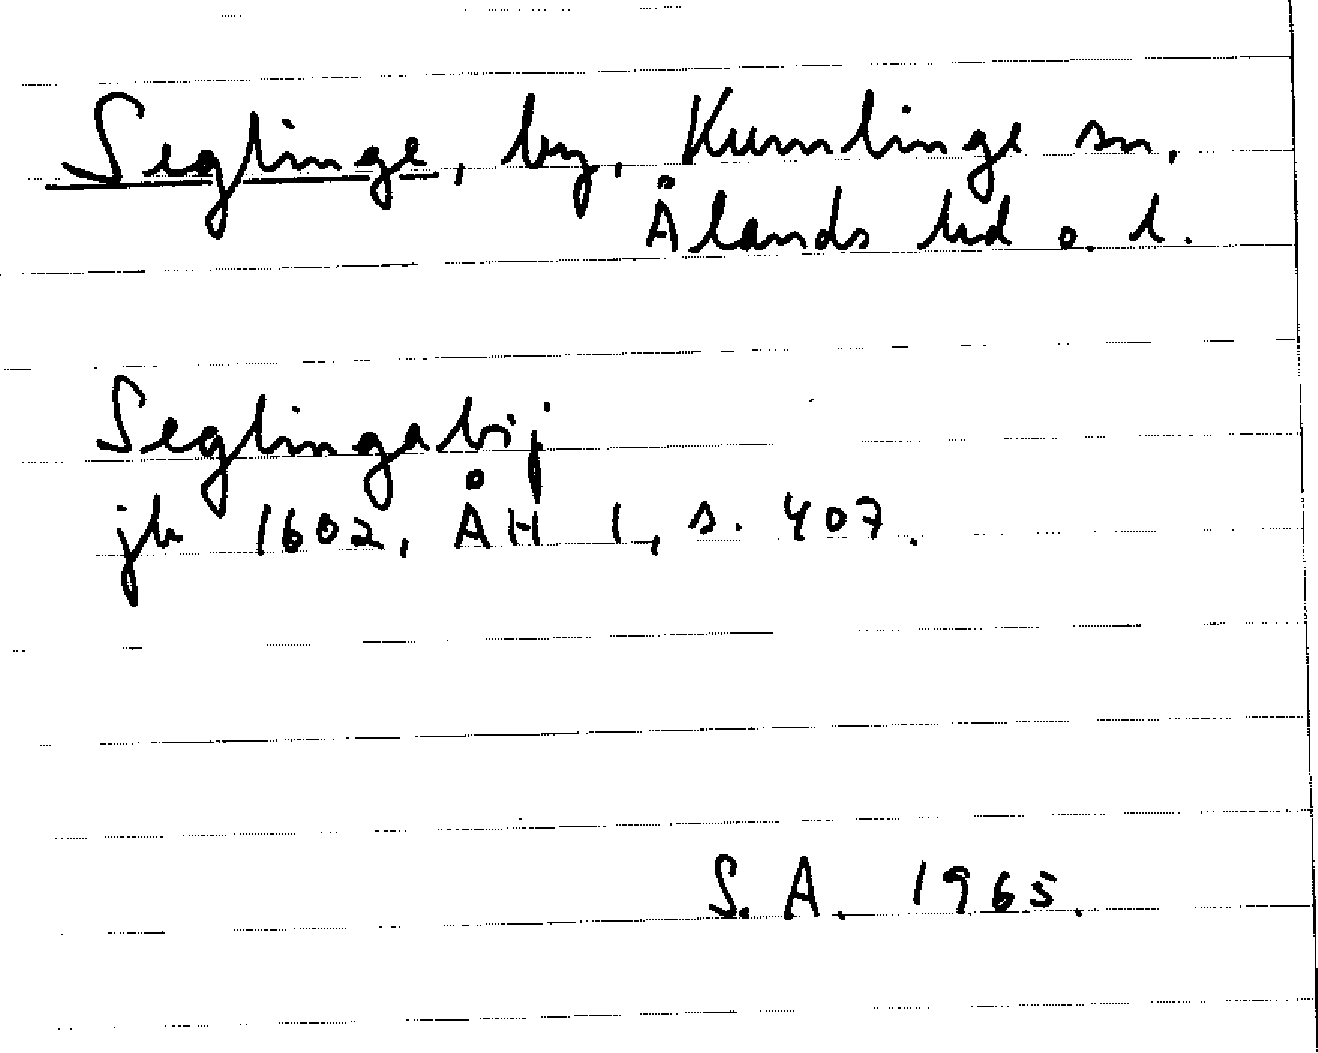 Seglinge, by, Kumlinge sn,
Ålands hd o. l.
Seglingabij
jb 1602, ÅH I, s. 407.
S. A. 1965.